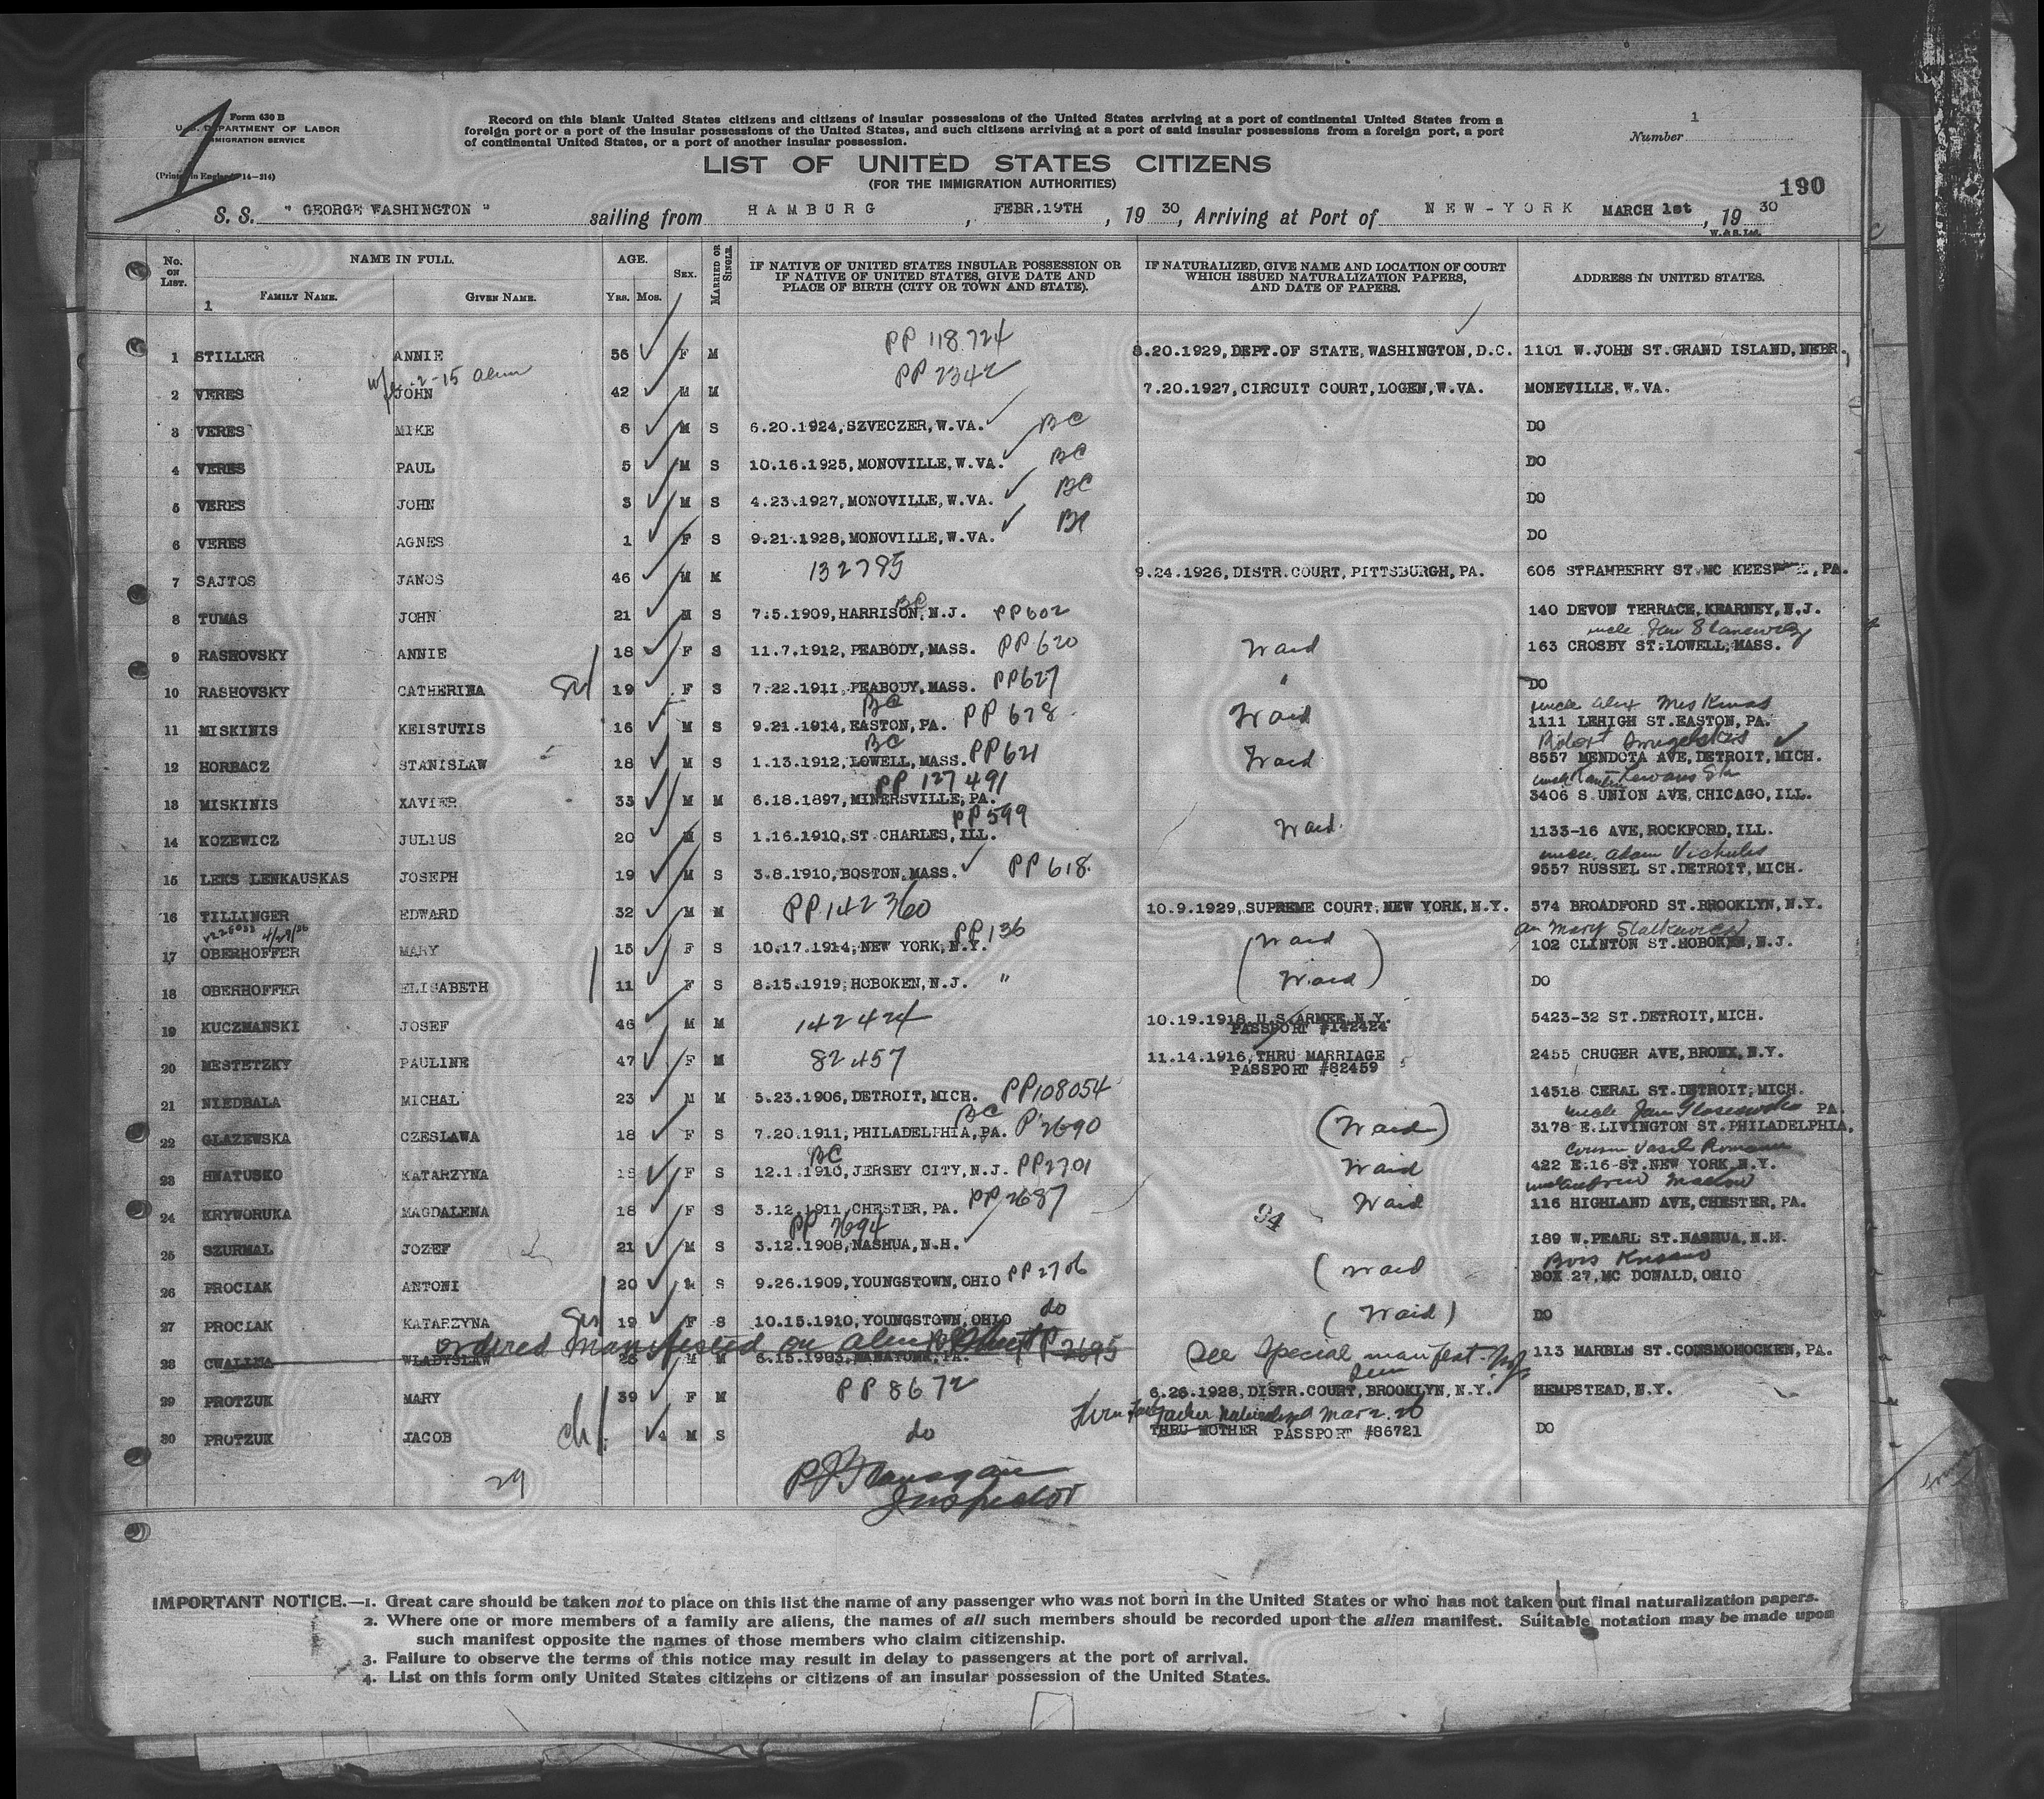 Form 630 B
U.S. DEPARTMENT OF LABOR
IMMIGRATION SERVICE
(Printed in England 16—214)
Record on this blank United States citizens and citizens of insular possessions of the United States arriving at a port of continental United States from a
foreign port or a port of the insular possessions of the United States, and such citizens arriving at a port of said insular possessions from a foreign port, a port
of continental United States, or a port of another insular possession.
1
Number
LIST OF UNITED STATES CITIZENS
(FOR THE IMMIGRATION AUTHORITIES)
190
S. S. " GEORGE WASHINGTON " sailing from HAMBURG , FEBR.19TH , 19 30, Arriving at Port of NEW-YORK MARCH 1st , 19 30
W. & S. Ltd.
No. ON LIST. NAME IN FULL. AGE. SEX. MARRIED OR SINGLE. IF NATIVE OF UNITED STATES INSULAR POSSESSION OR IF NATIVE OF UNITED STATES, GIVE DATE AND PLACE OF BIRTH (CITY OR TOWN AND STATE). IF NATURALIZED, GIVE NAME AND LOCATION OF COURT WHICH ISSUED NATURALIZATION PAPERS, AND DATE OF PAPERS. ADDRESS IN UNITED STATES.
FAMILY NAME. GIVEN NAME. YRS. MOS.
1
PP 118724
1 STILLER ANNIE 56 F M 8.20.1929, DEPT.OF STATE, WASHINGTON, D.C. 1101 W.JOHN ST.GRAND ISLAND, NEBR.
2-15 alien PP 2342
2 VERES JOHN 42 M M 7.20.1927, CIRCUIT COURT, LOGEN, W.VA. MONEVILLE, W.VA.
3 VERES MIKE 6 M S 6.20.1924, SZVECZER, W.VA. BC DO
4 VERES PAUL 5 M S 10.16.1925, MONOVILLE, W.VA. BC DO
5 VERES JOHN 3 M S 4.23.1927, MONOVILLE, W.VA. BC DO
6 VERES AGNES 1 F S 9.21.1928, MONOVILLE, W.VA. BC DO
7 SAJTOS JANOS 46 M M 132785 9.24.1926, DISTR.COURT, PITTSBURGH, PA. 606 STRAWBERRY ST.MC KEESPORT, PA.
BC
8 TUMAS JOHN 21 M S 7.5.1909, HARRISON, N.J. PP602 140 DEVON TERRACE, KEARNEY, N.J.
uncle
9 RASHOVSKY ANNIE 18 F S 11.7.1912, PEABODY, MASS. PP620 Waid 163 CROSBY ST.LOWELL, MASS.
10 RASHOVSKY CATHERINA 19 F S 7.22.1911, PEABODY, MASS. PP627 " DO
BC uncle Alex
11 MISKINIS KEISTUTIS 16 M S 9.21.1914, EASTON, PA. PP 628 Waid 1111 LEHIGH ST.EASTON, PA.
BC
12 HORBACZ STANISLAW 18 M S 1.13.1912, LOWELL, MASS. PP621 Waid 8557 MENDOTA AVE, DETROIT, MICH.
PP 127491
13 MISKINIS XAVIER 33 M M 6.18.1897, MINERSVILLE, PA. 3406 S.UNION AVE, CHICAGO, ILL.
PP599
14 KOZEWICZ JULIUS 20 M S 1.16.1910, ST CHARLES, ILL. Waid 1133-16 AVE, ROCKFORD, ILL.
uncle Adam
15 LEKS LENKAUSKAS JOSEPH 19 M S 3.8.1910, BOSTON, MASS. PP 618 9557 RUSSEL ST.DETROIT, MICH.
16 TILLINGER EDWARD 32 M M PP142360 10.9.1929, SUPREME COURT, NEW YORK, N.Y. 574 BROADFORD ST.BROOKLYN, N.Y.
PP136 Mary
17 OBERHOFFER MARY 15 F S 10.17.1914, NEW YORK, N.Y. (Waid 102 CLINTON ST.HOBOKEN, N.J.
18 OBERHOFFER ELISABETH 11 F S 8.15.1919, HOBOKEN, N.J. " Waid) DO
19 KUCZMANSKI JOSEF 46 M M 142424 10.19.1918, U.S.ARMEE, N.Y. 5423-32 ST.DETROIT, MICH.
PASSPORT #142424
20 MESTETZKY PAULINE 47 F M 82457 11.14.1916, THRU MARRIAGE 2455 CRUGER AVE, BRONX, N.Y.
PASSPORT #82459
21 NIEDBALA MICHAL 23 M M 5.23.1906, DETROIT, MICH. PP108054 14518 CERAL ST.DETROIT, MICH.
BC uncle PA.
22 GLAZEWSKA CZESLAWA 18 F S 7.20.1911, PHILADELPHIA, PA. P 2690 (Waid) 3178 E.LIVINGTON ST.PHILADELPHIA,
BC cousin Vasil
23 HNATUSKO KATARZYNA F S 12.1.1910, JERSEY CITY, N.J. PP2701 Waid 422 E.16 ST.NEW YORK, N.Y.
24 KRYWORUKA MAGDALENA 18 F S 3.12.1911, CHESTER, PA. PP2687 Waid 116 HIGHLAND AVE, CHESTER, PA.
PP 2694
25 SZURMAL JOZEF 21 M S 3.12.1908, NASHUA, N.H. 189 W.PEARL ST.NASHUA, N.H.
26 PROCIAK ANTONI 20 M S 9.26.1909, YOUNGSTOWN, OHIO PP2706 (Waid BOX 27, MC DONALD, OHIO
27 PROCIAK KATARZYNA 19 F S 10.15.1910, YOUNGSTOWN, OHIO do (Waid) DO
ordered manifested on alien sheet PP 2695
28 CWALINA WLADYSLAW 26 M M 6.15.1903, MANAYUNK, PA. See Special manifest 113 MARBLE ST.CONSHOHOCKEN, PA.
29 PROTZUK MARY 39 F M PP 8672 6.26.1928, DISTR.COURT, BROOKLYN, N.Y. HEMPSTEAD, N.Y.
Father Naturalized Mar 2. 26
30 PROTZUK JACOB 4 M S do THRU MOTHER PASSPORT #86721 DO
29
Inspector
IMPORTANT NOTICE.—1. Great care should be taken not to place on this list the name of any passenger who was not born in the United States or who has not taken out final naturalization papers.
2. Where one or more members of a family are aliens, the names of all such members should be recorded upon the alien manifest. Suitable notation may be made upon
such manifest opposite the names of those members who claim citizenship.
3. Failure to observe the terms of this notice may result in delay to passengers at the port of arrival.
4. List on this form only United States citizens or citizens of an insular possession of the United States.